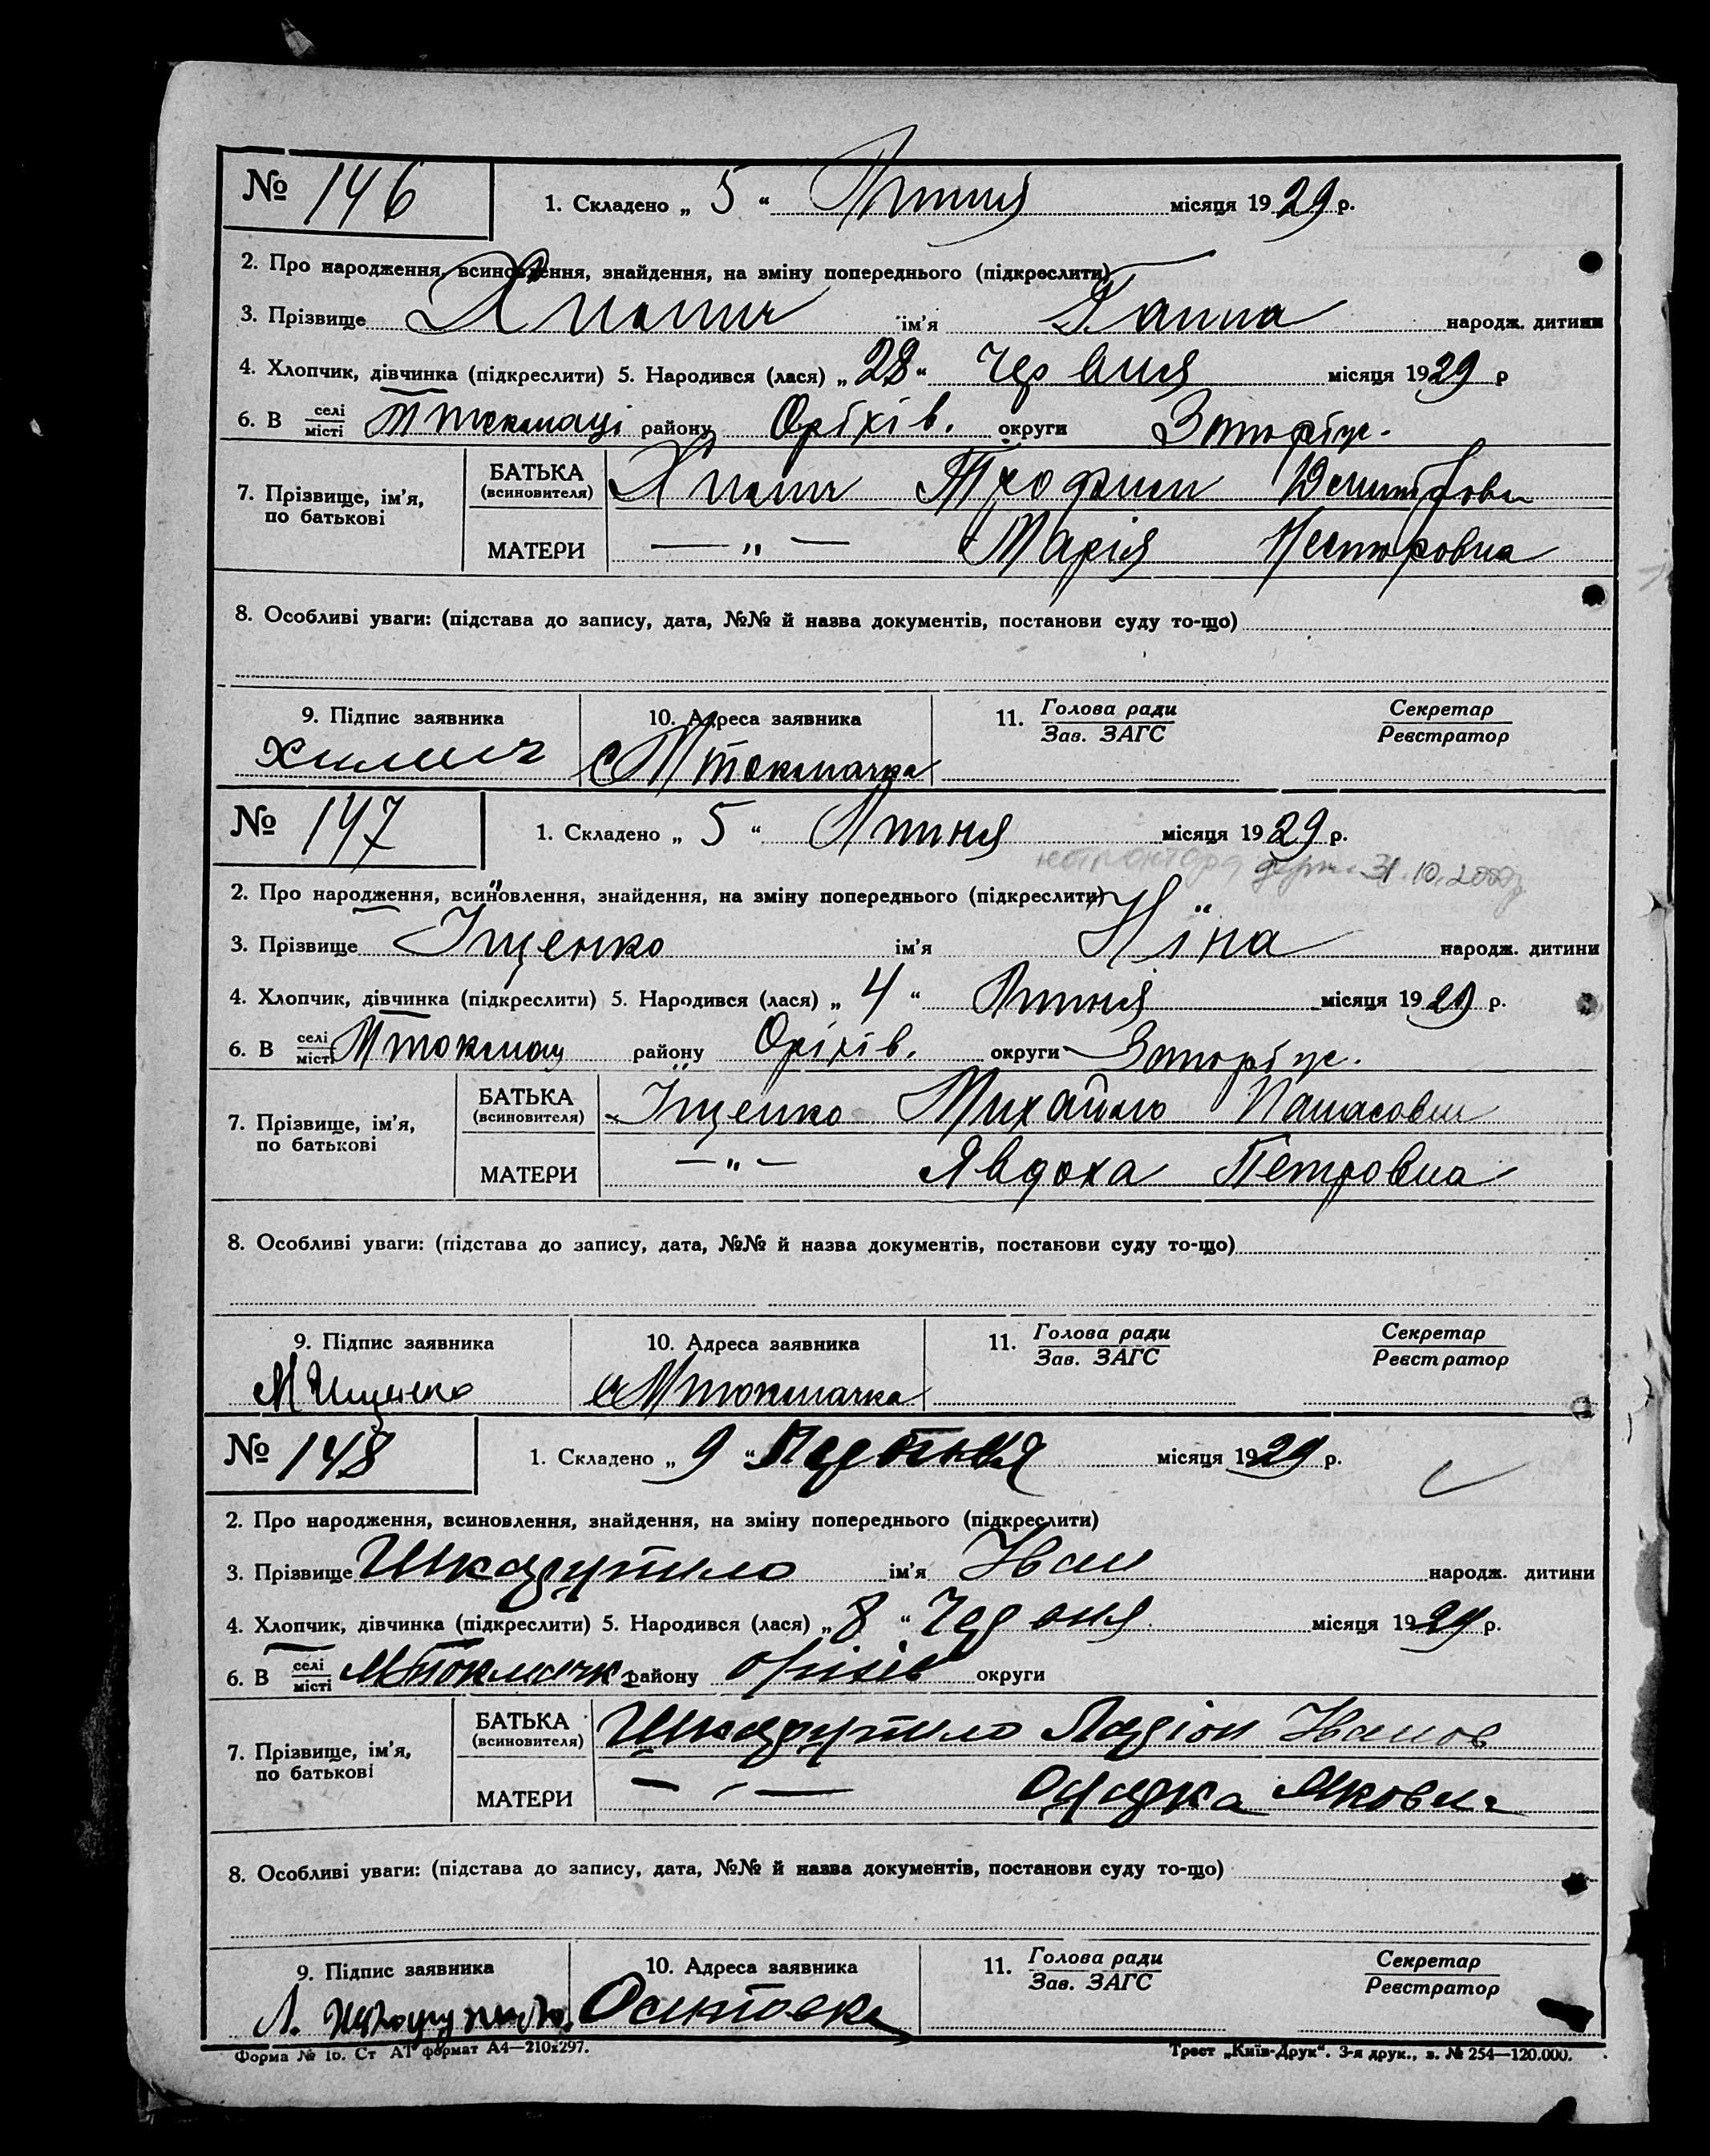 № 146 1. Складено „ 5 “ Липня місяця 1929 р.
2. Про народження, всиновлення, знайдення, на зміну попереднього (підкреслити)
3. Прізвище ім'я Ганна народж. дитини
4. Хлопчик, дівчинка (підкреслити) 5. Народився (лася) „ 28 “ Червня місяця 1929 р
6. В селі/місті М Токмаці району Оріхів. округи Запоріж.
7. Прізвище, ім'я, по батькові
БАТЬКА (всиновителя) Трофим
МАТЕРИ — „ — Марія Несторовна
8. Особливі уваги: (підстава до запису, дата, №№ й назва документів, постанови суду то-що)
9. Підпис заявника 10. Адреса заявника 11. Голова ради/Зав. ЗАГС Секретар/Реєстратор
с М Токмачка
№ 147 1. Складено „ 5 “ Липня місяця 1929 р.
31.10.2000р
2. Про народження, всиновлення, знайдення, на зміну попереднього (підкреслити)
3. Прізвище Іщенко ім'я Ніна народж. дитини
4. Хлопчик, дівчинка (підкреслити) 5. Народився (лася) „ 4 “ Липня місяця 1929 р.
6. В селі/місті М Токмац району Оріхів. округи Запоріж.
7. Прізвище, ім'я, по батькові
БАТЬКА (всиновителя) Іщенко Михайло Панасович
МАТЕРИ — „ — Явдоха Петровна
8. Особливі уваги: (підстава до запису, дата, №№ й назва документів, постанови суду то-що)
9. Підпис заявника 10. Адреса заявника 11. Голова ради/Зав. ЗАГС Секретар/Реєстратор
М Ищенко с М Токмачка
№ 148 1. Складено „ 9 “ місяця 1929 р.
2. Про народження, всиновлення, знайдення, на зміну попереднього (підкреслити)
3. Прізвище Шкарупило ім'я Іван народж. дитини
4. Хлопчик, дівчинка (підкреслити) 5. Народився (лася) „ 8 “ Червня місяця 1929 р.
6. В селі/місті М Токмачк району Оріхів округи
7. Прізвище, ім'я, по батькові
БАТЬКА (всиновителя) Шкарупило Ларіон Іванов
МАТЕРИ — „ — Одарка Яковл
8. Особливі уваги: (підстава до запису, дата, №№ й назва документів, постанови суду то-що)
9. Підпис заявника 10. Адреса заявника 11. Голова ради/Зав. ЗАГС Секретар/Реєстратор
Л. Шкарупило.
Форма № 1б. Ст АТ формат А4—210х297. Трест „Київ-Друк“. 3-я друк., з. № 254—120.000.